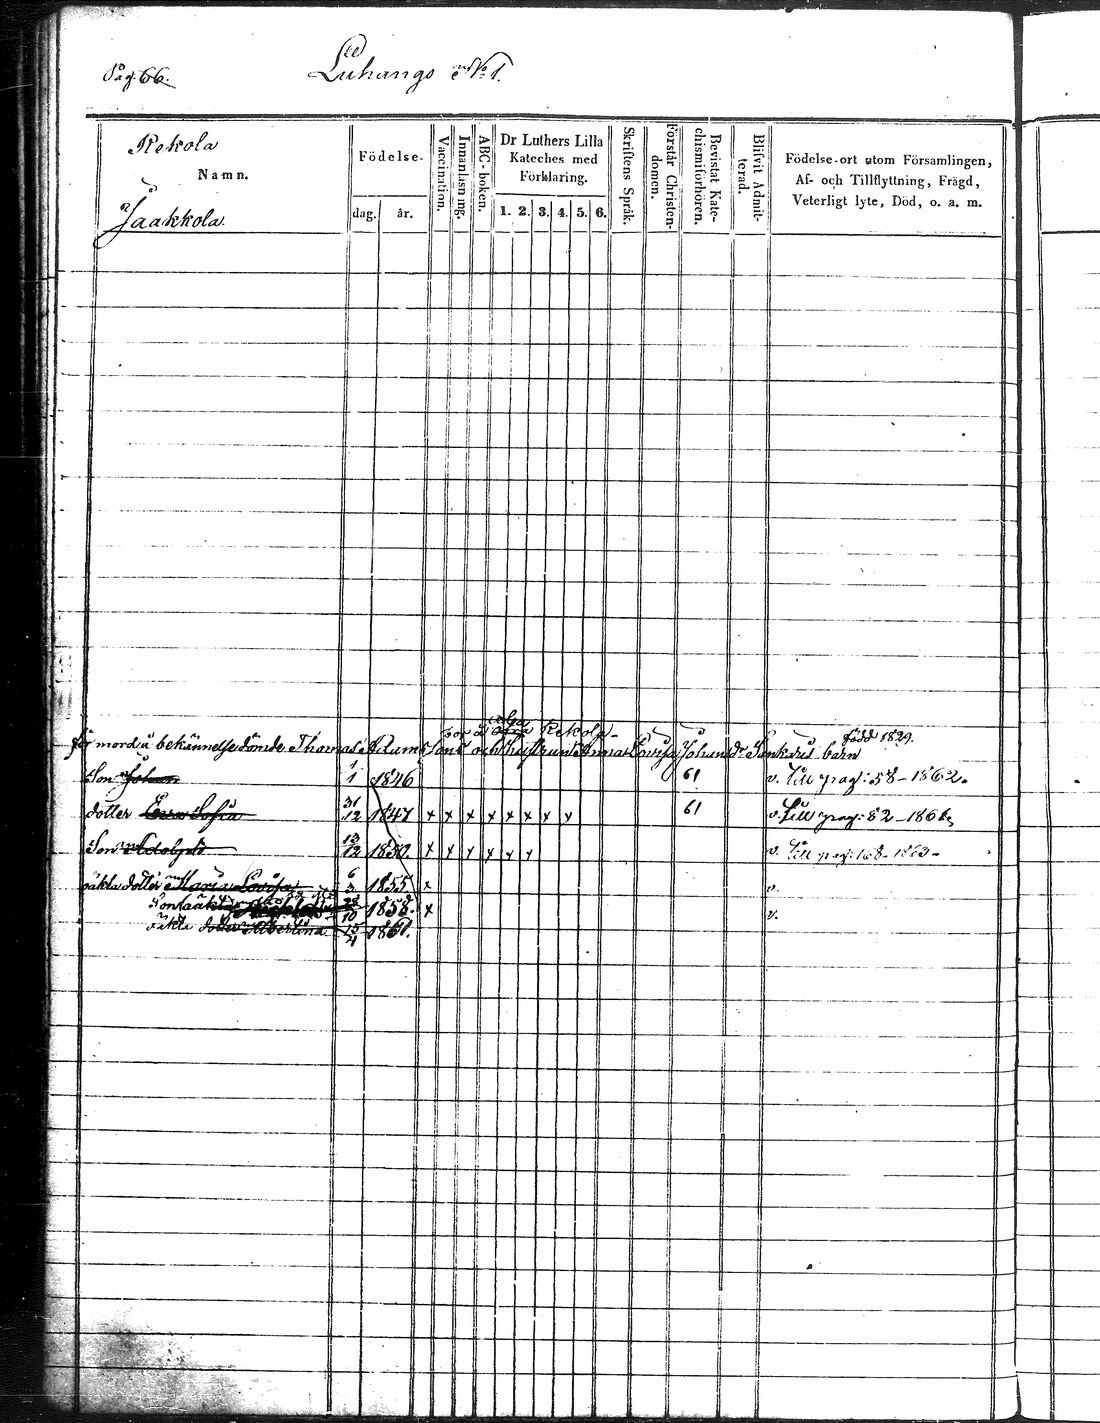 Pag: 66.
Luhango No 1.
Rekola
Namn.
Jaakkola.
Födelse-
dag. år.
Vaccination.
Innanläsning.
ABC-boken.
Dr Luthers Lilla
Kateches med
Förklaring.
1. 2. 3. 4. 5. 6.
Skriftens Språk.
Förstår Christen-
domen.
Bevistat Kate-
chismiförhören.
Blifvit Admit-
terad.
Födelse-ort utom Församlingen,
Af- och Tillflyttning, Frägd,
Veterligt lyte, Död, o. a. m.
Rekola
född 1829.
för mord å bekännelse dömde Thomas Adams Sons och hustruns Annas Lovisa Johansdr barn
Son Johan 1/1 1846 61 v. till pag: 58 - 1862.
dotter Eva Sofia 31/12 1847 x x x x x x x x 61 v. till pag: 82 - 186
Son Adolph 13/12 1850. x x x x x x v. till pag: 168 - 1863 -
oäkta dotter Maria Lovisa 6/3 1855 x v.
Son oäkta 28/10 1858. x v.
oäkta dotter Albertina 15/4 1861.